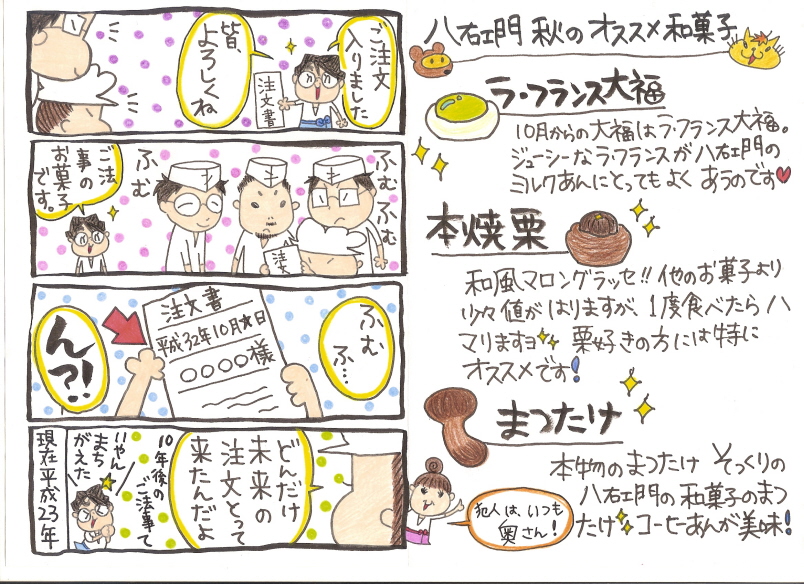 ご注文
入りました
注文書
皆
よろしくね
ふむふむ
ふむ
注文
ご法
事の
お菓子
です。
ふむ
ふ…
注文書
平成32年10月★日
○○○○様
ん?!
どんだけ
未来の
注文とって
来たんだよ
10年後の
ご法事で
いやん
まち
がえた
現在平成23年
八右エ門 秋のオススメ和菓子
ラ・フランス大福
10月からの大福はラ・フランス大福。
ジューシーなラ・フランスが八右エ門の
ミルクあんにとってもよくあうのです♥
本焼栗
和風マロングラッセ!!他のお菓子より
少々値がはりますが、1度食べたらハ
マリますヨ 栗好きの方には特に
オススメです!
まつたけ
本物のまつたけ そっくりの
八右エ門の和菓子のまつ
たけ コーヒーあんが美味!
犯人は、いつも
奥さん!